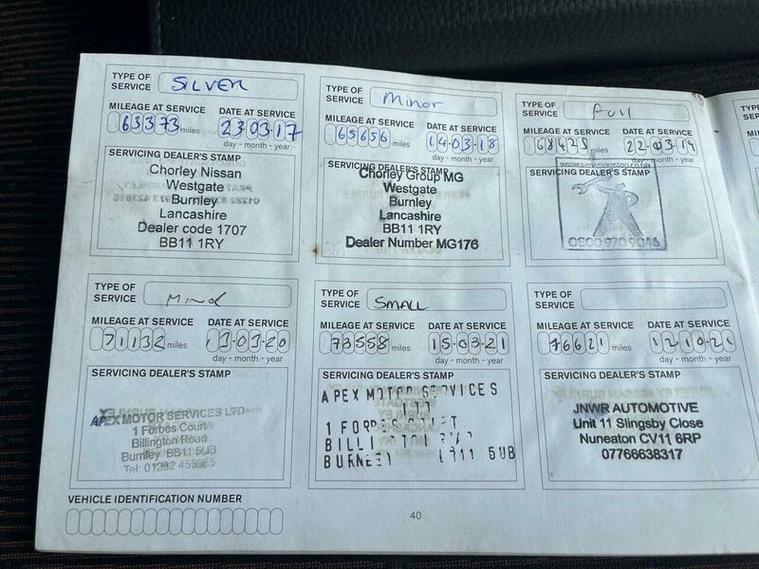 TYPE OF SERVICE SILVER
MILEAGE AT SERVICE DATE AT SERVICE
63373 miles 23 03 17
day - month - year
SERVICING DEALER'S STAMP
Chorley Nissan
Westgate
Burnley
Lancashire
Dealer code 1707
BB11 1RY
TYPE OF SERVICE Minor
MILEAGE AT SERVICE DATE AT SERVICE
65656 miles 14-03-18
day - month - year
SERVICING DEALER'S STAMP
Chorley Group MG
Westgate
Burnley
Lancashire
BB11 1RY
Dealer Number MG176
TYPE OF SERVICE Full
MILEAGE AT SERVICE DATE AT SERVICE
68425 miles 22-03-19
day - month - year
www.servicingstop.co.uk
SERVICING DEALER'S STAMP
0800 970 9046
TYPE OF SERVICE
MILEAGE AT SERVICE DATE AT SERVICE
71132 miles 13-03-20
day - month - year
SERVICING DEALER'S STAMP
APEX MOTOR SERVICES LTD
1 Forbes Court
Billington Road
Burnley BB11 5UB
Tel: 01282
TYPE OF SERVICE SMALL
MILEAGE AT SERVICE DATE AT SERVICE
73558 miles 15-03-21
day - month - year
SERVICING DEALER'S STAMP
APEX MOTOR SERVICES
5UB
TYPE OF SERVICE
MILEAGE AT SERVICE DATE AT SERVICE
76621 miles 12-10-21
day - month - year
SERVICING DEALER'S STAMP
JNWR AUTOMOTIVE
Unit 11 Slingsby Close
Nuneaton CV11 6RP
07766638317
VEHICLE IDENTIFICATION NUMBER
40